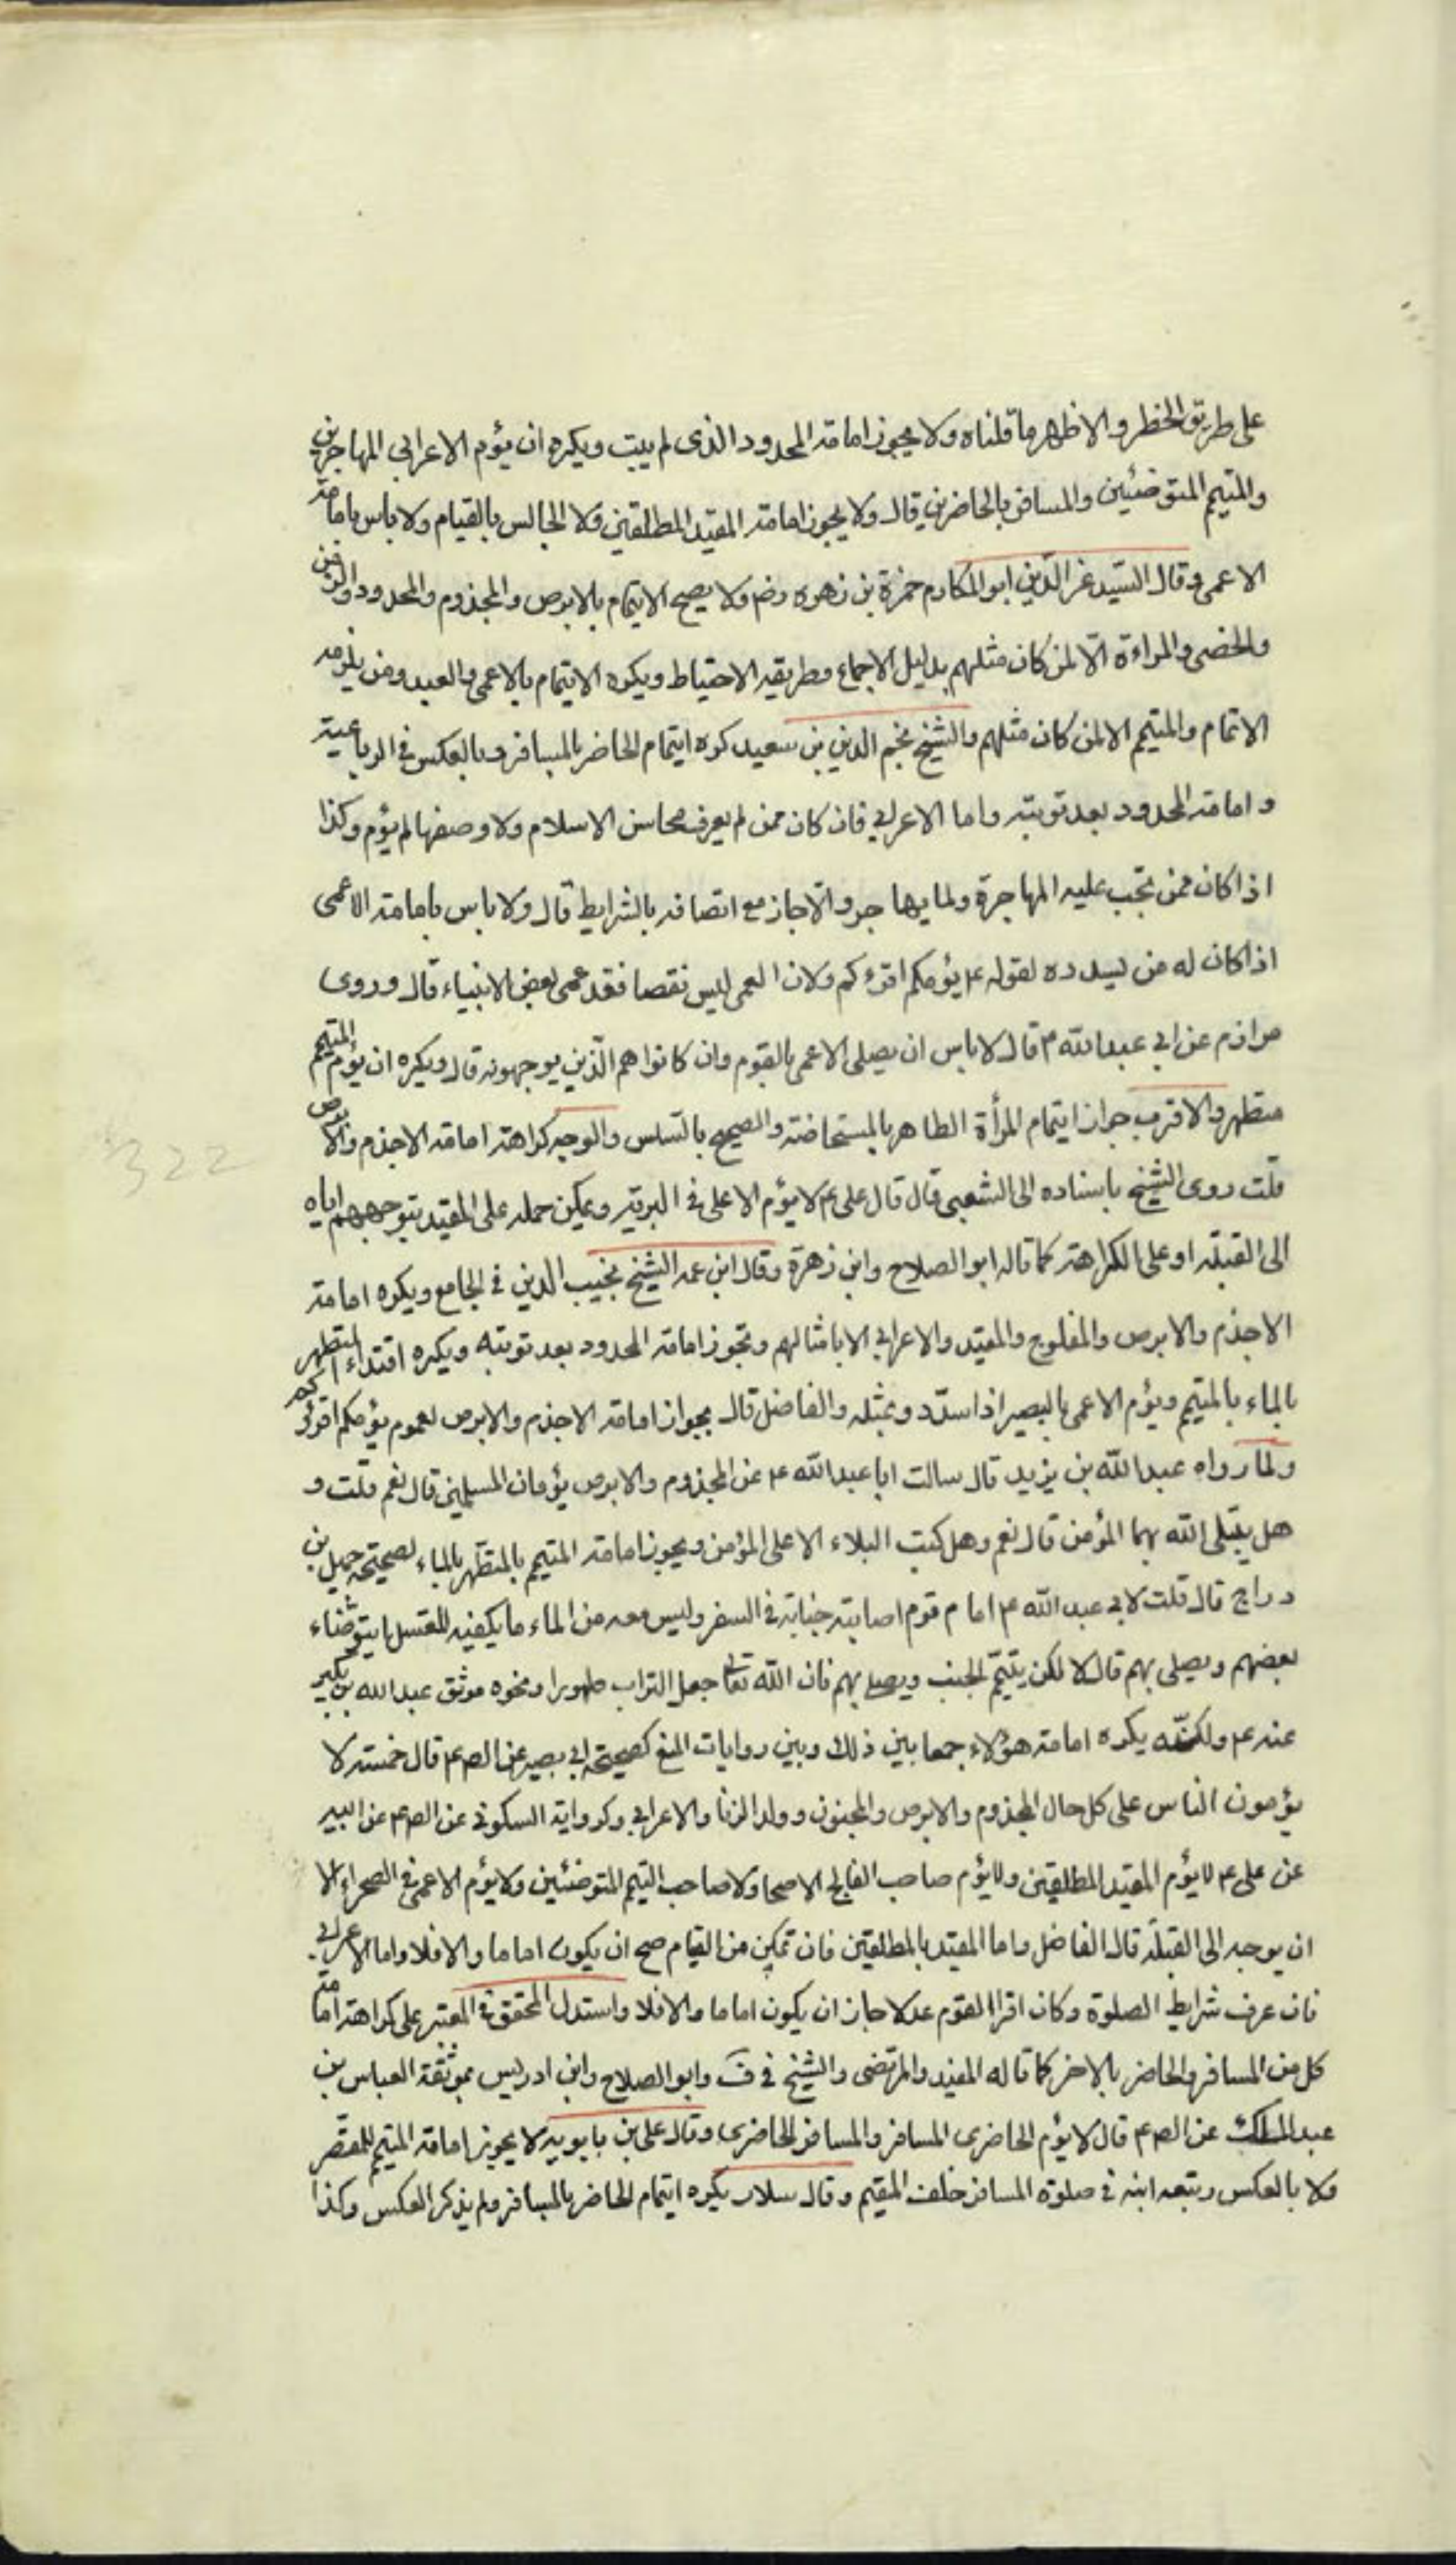 على طريق الحظر والاظهر ما قلناه ولا يجوز امامة المحدود الذى لم يبت ويكره ان يؤم الاعرابى المهاجرين
والمتيمم المتوضئين والمسافر بالحاضرين قال ولا يجوز امامة المقيد المطلقين ولا الجالس بالقيام ولا باس بامامة
الاعمى وقال السيد عز الدين ابو المكارم حمزة بن زهره رضه ولا يصح الايتمام بالابرص والمجذوم والمحدود والزمن
والخصى والمراءة الا لمن كان مثلهم بدليل الاجماع وطريقة الاحتياط ويكره الايتمام بالاعمى والعبد ومن يلزمه
الاتمام والمتيمم الا لمن كان مثلهم والشيخ نجم الدين بن سعيد كره ايتمام الحاضر بالمسافر وبالعكس فى الرباعية
و امامة المحدود بعد توبته واما الاعرابي فان كان ممن لم يعرف محاسن الاسلام ولا وصفها لم يؤم وكذا
اذا كان ممن تجب عليه المهاجرة ولما يهاجر والا جاز مع اتصافه بالشرايط قال ولا باس بامامة الاعمى
اذا كان له من يسدده لقوله ع يؤمكم اقرءكم ولان العمى ليس نقصا فقد عمى بعض الانبياء قال وروى
مرازم عن ابي عبد الله ع قال لا باس ان يصلى الاعمى بالقوم وان كانوا هم الذين يوجهونه قال ويكره ان يؤم المتيمم
متطهر والاقرب جواز ايتمام المرأة الطاهر بالمستحاضة والصحيح بالسلس والوجه كراهة امامة الاجذم والابرص
قلت روى الشيخ باسناده الى الشعبى قال قال على ع لا يؤم الاعلى فى البرية ويمكن حمله على المقيد بتوجههم اياه
الى القبلة او على الكراهة كما قاله ابو الصلاح وابن زهرة وقال ابن عمه الشيخ نجيب الدين فى الجامع ويكره امامة
الاجذم والابرص والمفلوج والمقيد والاعرابي الا بامثالهم وتجوز امامة المحدود بعد توبته ويكره اقتداء المتطهر
بالماء بالمتيمم ويؤم الاعمى بالبصير اذا سدد وبمثله والفاضل قال بجواز امامة الاجذم والابرص لعموم يؤمكم اقرؤكم
ولما رواه عبد الله بن يزيد قال سالت ابا عبد الله ع عن المجذوم والابرص يؤمان المسلمين قال نعم قلت و
هل يبتلى الله بهما المؤمن قال نعم وهل كتب البلاء الا على المؤمن ويجوز امامة المتيمم بالمتطهر بالماء لصحيحة جميل بن
دراج قال قلت لابي عبد الله ع امام قوم اصابته جنابة فى السفر وليس معه من الماء ما يكفيه للغسل ايتوضاء
بعضهم ويصلى بهم قال لا لكن يتيمم الجنب ويصلى بهم فان الله تعالى جعل التراب طهورا ونحوه موثق عبد الله بن بكير
عنه ع ولكنه يكره امامة هؤلاء جمعا بين ذلك وبين روايات المنع كصحيحة ابي بصير عن الص ع قال خمسة لا
يؤمون الناس على كل حال المجذوم والابرص والمجنون وولد الزنا والاعرابي وكرواية السكونى عن الص ع عن ابيه
عن على ع لا يؤم المقيد المطلقين ولا يؤم صاحب الفالج الاصحا ولا صاحب التيمم المتوضئين ولا يؤم الاعمى فى الصحراء الا
ان يوجه الى القبلة قال الفاضل واما المقيد بالمطلقين فان تمكن من القيام صح ان يكون اماما والا فلا واما الاعرابي
فان عرف شرايط الصلوة وكان اقرا القوم عدلا جاز ان يكون اماما والا فلا واستدل المحقق فى المعتبر على كراهة امامة
كل من المسافر والحاضر بالاخر كما قاله المفيد والمرتضى والشيخ فى ف وابو الصلاح وابن ادريس بموثقة العباس بن
عبد الملك عن الص ع قال لا يؤم الحاضرى المسافر والمسافر الحاضرى وقال على بن بابويه لا يجوز امامة المتيمم للمقصر
ولا بالعكس وتبعه ابنه فى صلوة المسافر خلف المقيم وقال سلار يكره ايتمام الحاضر بالمسافر ولم يذكر العكس وكذا
322